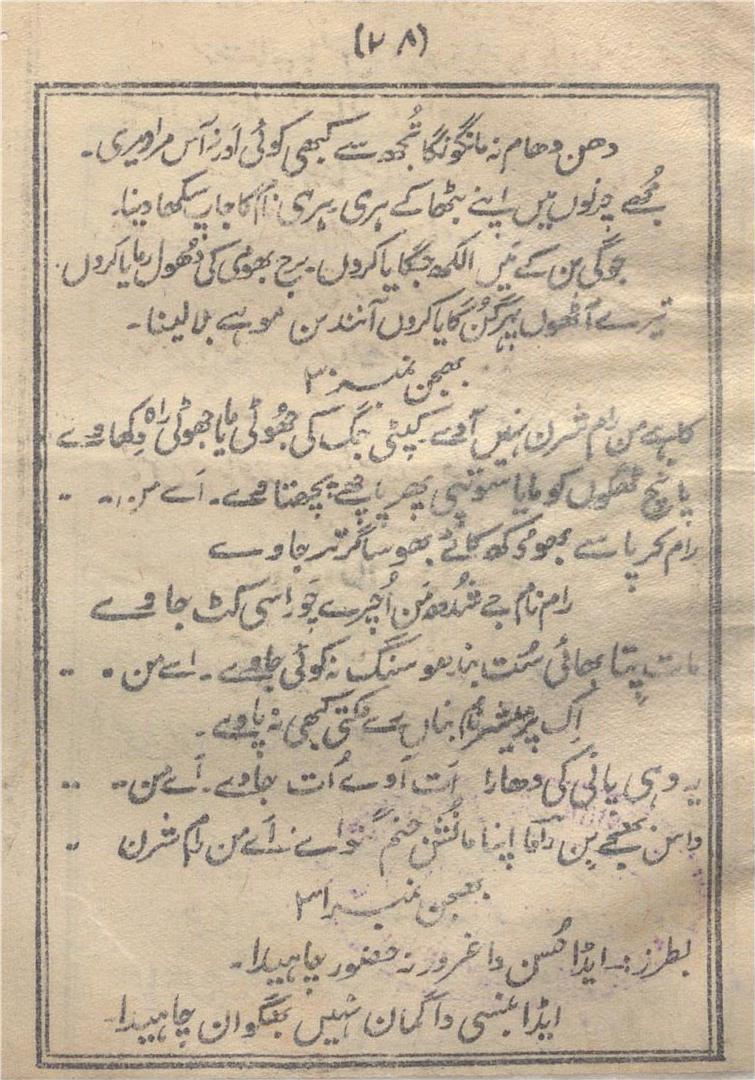 (۲۸)
دھن دھام نہ مانگونگا تُجھ سے کبھی کوئی اَور نہ آس مراد میری۔
مُجھے چرنوں میں اپنے بٹھا کے ہری۔ ہری نام کا جاپ سکھا دینا۔
جوگی بن کے مَیں الکھ جگایا کروں۔ برج بھومی کی دُھول رمایا کروں۔
تیرے آٹھوں پہر گُن گایا کروں آنند بن موہے بلا لینا۔
بھجن نمبر ۳۰
کاہے من رام شرن نہیں آوے۔ کپٹی جگ کی جھُوٹی مایا جھوٹی راہ دِکھاوے
پانچ ٹھگوں کو مایا سونپی پھر پاچھے پچھتاوے۔ اَے من۔۔ ۔۔
رام کرپا سے بھوکھ کاٹے بھوساگر تر جاوے
رام نام جے شُدھ مَن اُچرے چَوراسی کٹ جاوے
مات پِتا بھائی سُت بندھو سنگ نہ کوئی جاوے۔ اے من ۰ ۔۔
اِک پرمیشر نام بناں رے مُکتی کبھی نہ پاوے۔
یہ وہی پانی کی دھارا اَت آوے اُت جاوے۔ اَے من۔۔ ۔۔
داسن بھجے بِن اپنا مانُش جنم گنواے۔ اَے من رام شرن ۔۔
بھجن نمبر ۳۱
بطرز:۔ ایڈا حُسن دا غرور نہ حضور چاہیدا۔
ایڈا بنسی دا گمان نہیں بھگوان چاہیدا۔